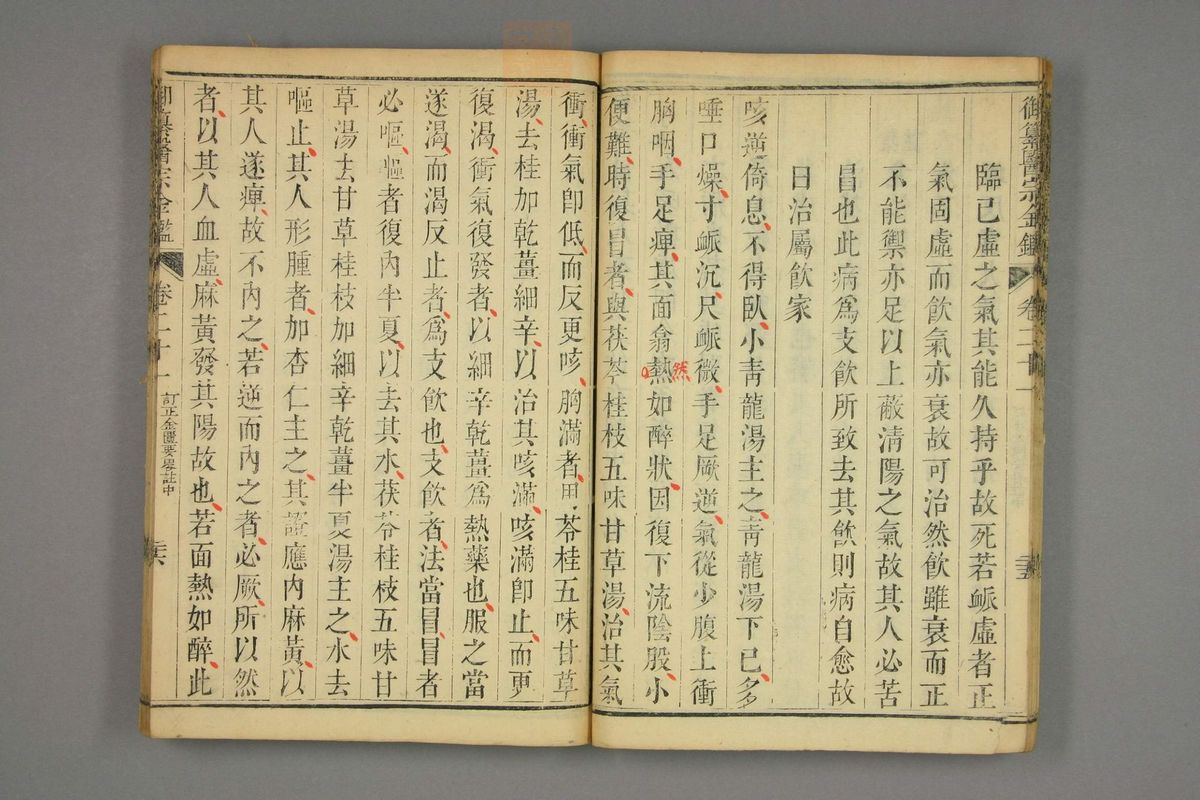 御纂醫宗金鑑 卷二十一 二五
臨已虛之氣其能久持乎故死若脈虛者正
氣固虛而飲氣亦衰故可治然飲雖衰而正
不能禦亦足以上蔽清陽之氣故其人必苦
昌也此病爲支飲所致去其飲則病自愈故
曰治屬飲家
咳逆倚息不得臥小靑龍湯主之靑龍湯下已多
唾口燥寸脈沉尺脈微手足厥逆氣從少腹上衝
胸咽手足痺其面翕熱如醉狀因復下流陰股小
然
便難時復冒者與茯苓桂枝五味甘草湯治其氣
衝衝氣卽低而反更咳胸滿者用苓桂五味甘草
湯去桂加乾薑細辛以治其咳滿咳滿卽止而更
復渴衝氣復發者以細辛乾薑爲熱藥也服之當
遂渴而渴反止者爲支飲也支飲者法當冒冒者
必嘔嘔者復內半夏以去其水茯苓桂枝五味甘
草湯去甘草桂枝加細辛乾薑半夏湯主之水去
嘔止其人形腫者加杏仁主之其證應內麻黃以
其人遂痺故不內之若逆而內之者必厥所以然
者以其人血虛麻黃發其陽故也若面熱如醉此
御纂醫宗金鑑 卷二十一 訂正金匱要畧註中 二六